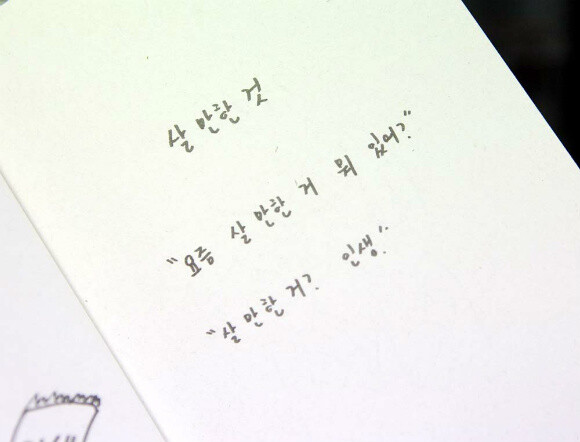 살 만한 것
"요즘 살 만한 거 뭐 있어?"
"살 만한 거? 인생."